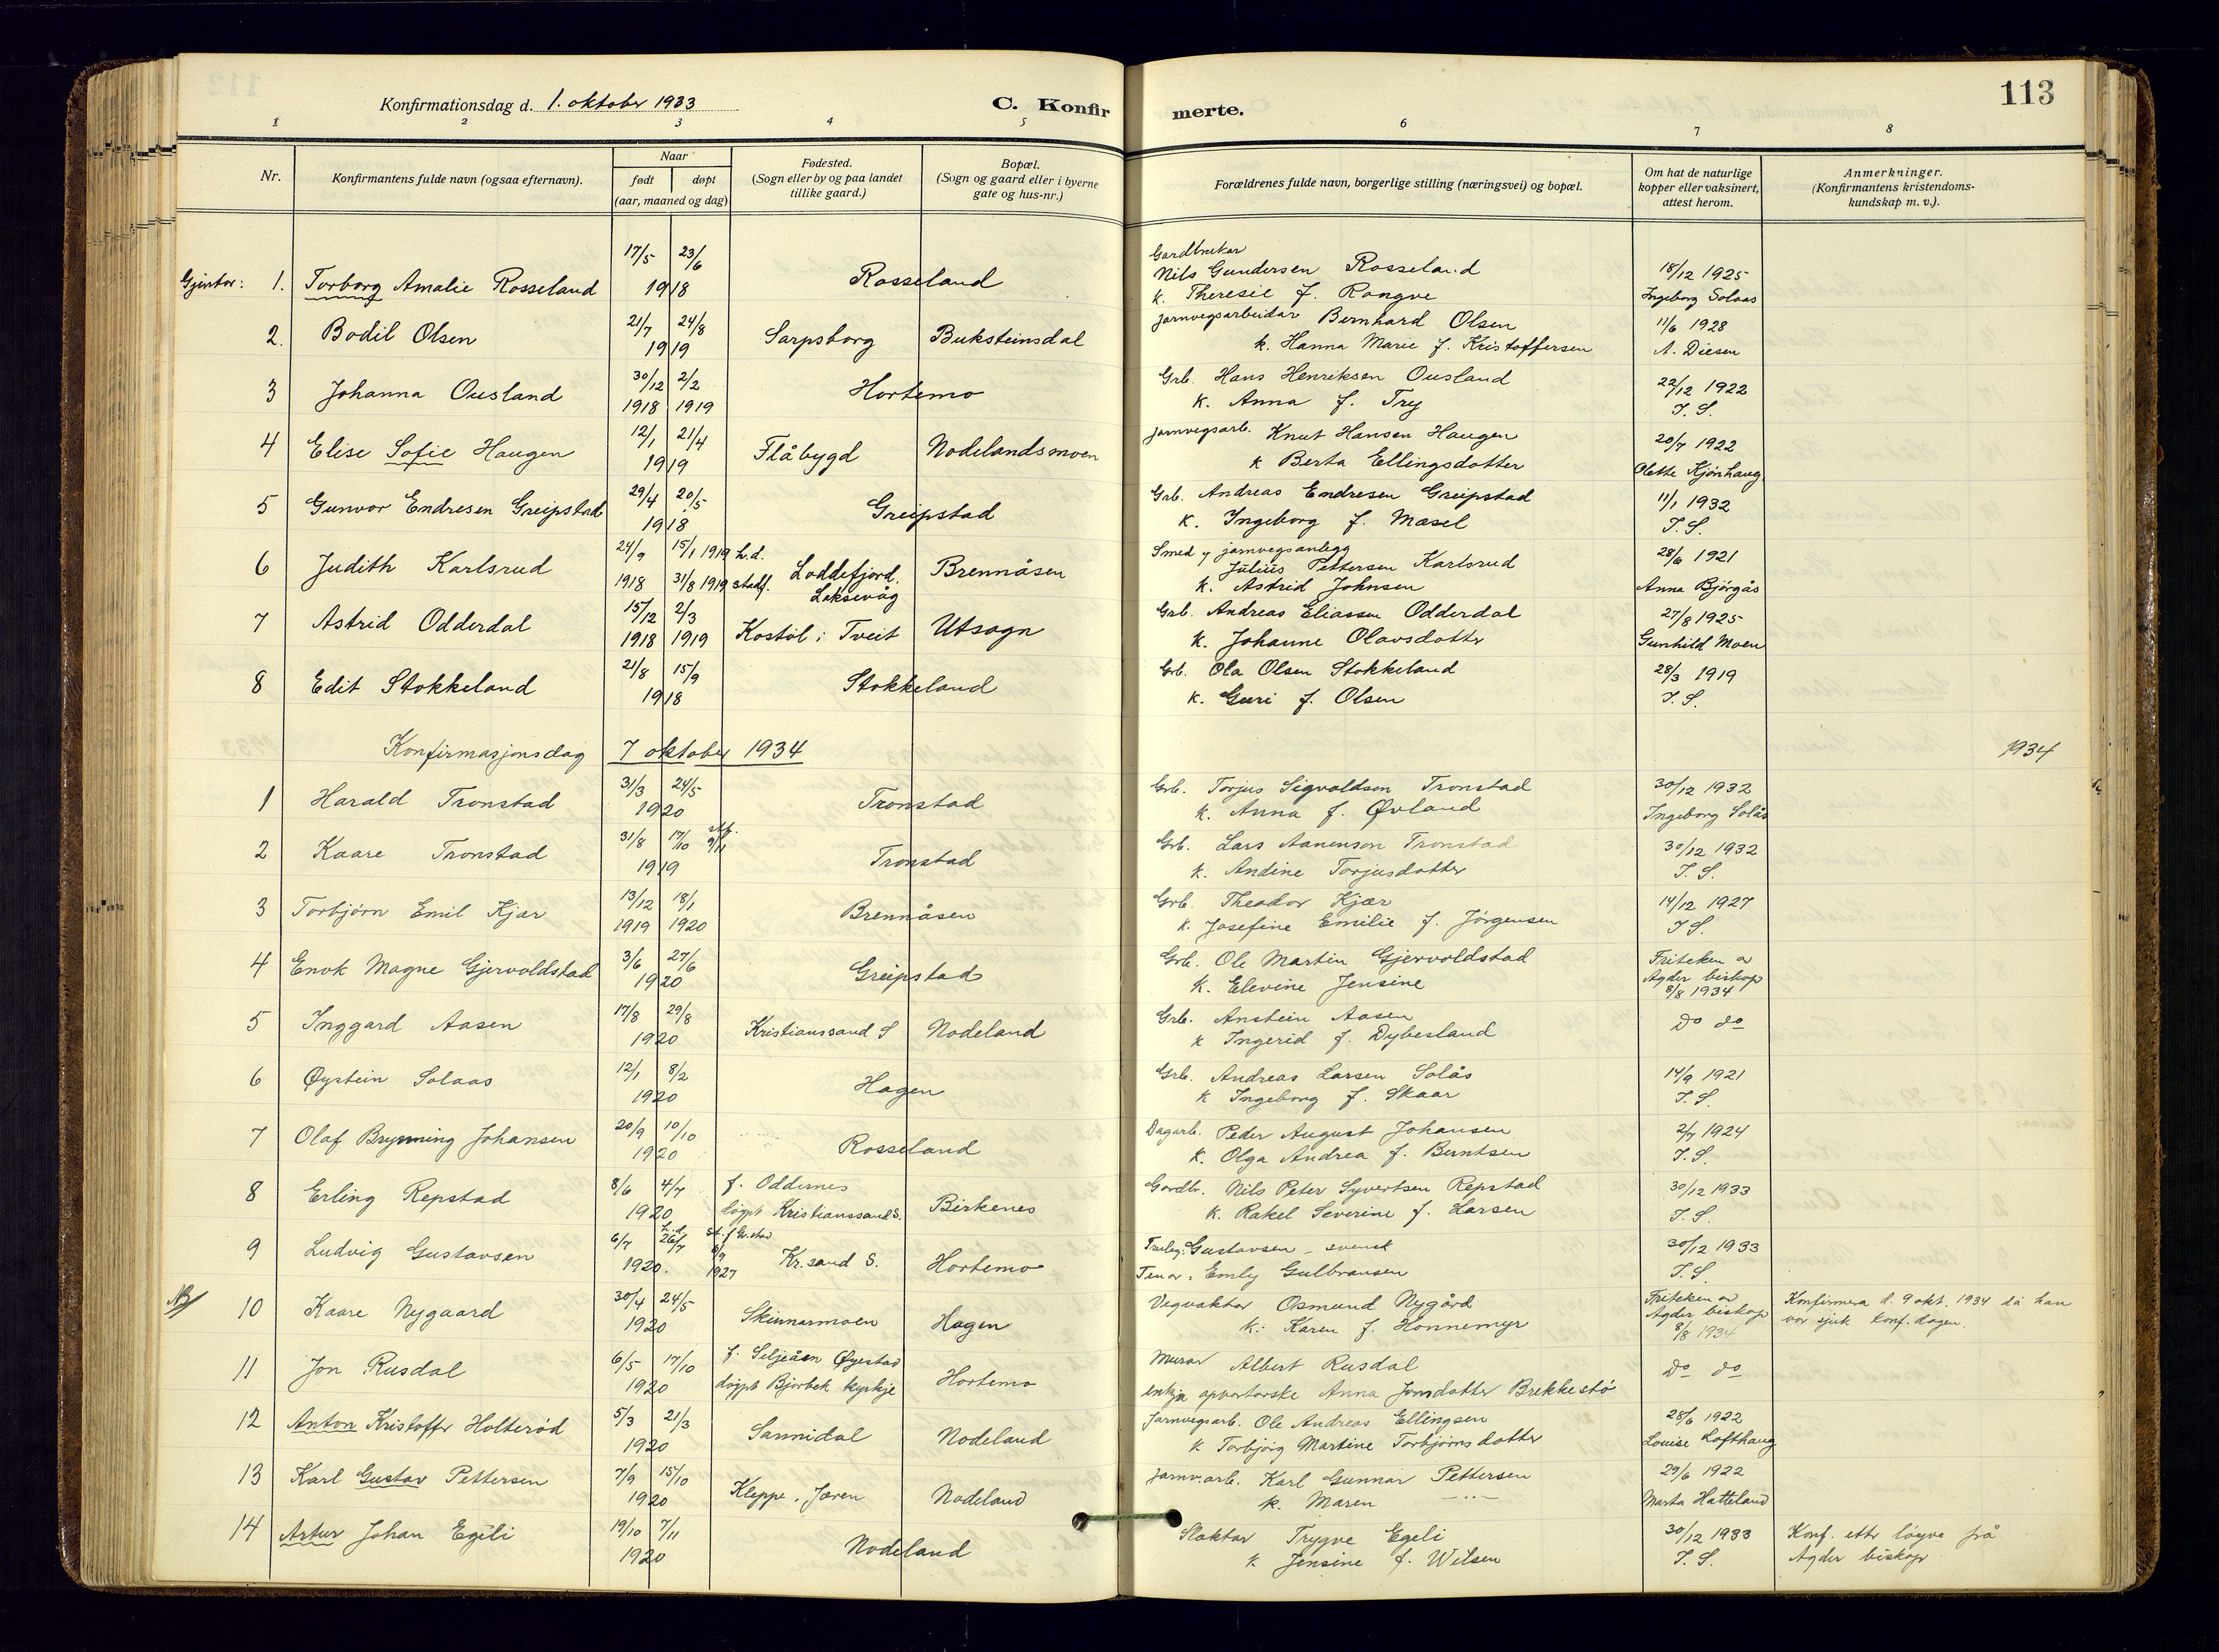 113
Konfirmationsdag d. 1. oktober 1933
C. Konfirmerte.
1 2 3 4 5 6 7 8
Nr.
Konfirmantens fulde navn (ogsaa efternavn).
Naar
født døpt
(aar, maaned og dag)
Fødested.
(Sogn eller by og paa landet
tillike gaard.)
Bopæl.
(Sogn og gaard eller i byerne
gate og hus-nr.)
Forældrenes fulde navn, borgerlige stilling (næringsvei) og bopæl.
Om hat de naturlige
kopper eller vaksinert,
attest herom.
Anmerkninger.
(Konfirmantens kristendoms-
kundskap m. v.).
Gjentor: 1. Torborg Amalie Rosseland 17/5 23/6 1918 Rosseland
Gardbrukar
Nils Gundersen Rosseland
k. Theresie f. Rongve
18/12 1925
Ingeborg Solaas
2. Bodil Olsen 21/7 24/8 1919 Sarpsborg Buksteinsdal
jarnvegsarbeidar Bernhard Olsen
k. Hanna Marie f. Kristoffersen
11/6 1928
A. Diesen
3 Johanna Ousland 30/12 1918 2/2 1919 Hortemo
Grb. Hans Henriksen Ousland
k. Anna f. Try
22/12 1922
I. S.
4 Elise Sofie Haugen 12/1 21/4 1919 Flåbygd Nodelandsmoen
jarnvegsarb. Knut Hansen Haugen
k Berta Ellingsdotter
20/7 1922
Olette Kjønhaug
5 Gunvor Endresen Greipstad 29/4 20/5 1918 Greipstad
Grb. Andreas Endresen Greipstad
k. Ingeborg f. Mæsel
11/1 1932
I. S.
6 Judith Karlsrud 24/9 1918 15/1 1919 h.d. 31/8 1919 stadf. Loddefjord, Laksevåg Brennåsen
Smed v jarnvegsanlegg
Julius Pettersen Karlsrud
k. Astrid Johnsen
28/6 1921
Anna Bjørgås
7 Astrid Odderdal 15/12 1918 2/3 1919 Kostøl i Tveit Utsogn
Grb. Andreas Eliassen Odderdal
k. Johanne Olavsdotter
27/8 1925
Gunhild Moen
8 Edit Stokkeland 21/8 15/9 1918 Stokkeland
Grb. Ola Olsen Stokkeland
k. Guri f. Olsen
28/3 1919
I. S.
Konfirmasjonsdag 7 oktober 1934
1934
1 Harald Tronstad 31/3 24/5 1920 Tronstad
Grb. Torjus Sigvaldsen Tronstad
k. Anna f. Øvland
30/12 1932
Ingeborg Solås
2 Kaare Tronstad 31/8 17/10 stf. 9/11 1919 Tronstad
Grb. Lars Aanenson Tronstad
k. Andine Torjusdotter
30/12 1932
I. S.
3 Torbjørn Emil Kjær 13/12 1919 18/1 1920 Brennåsen
Grb. Theodor Kjær
k. Josefine Emilie f. Jørgensen
14/12 1927
I S.
4 Enok Magne Gjervoldstad 3/6 27/6 1920 Greipstad
Grb. Ole Martin Gjervoldstad
k. Elevine Jensine
Friteken av
Agder biskop
8/8 1934
5 Inggard Aasen 17/8 29/8 1920 Kristianssand S Nodeland
Grb. Anstein Aasen
k Ingerid f. Dybesland
do do
6 Øystein Solaas 12/1 8/2 1920 Hagen
Grb. Andreas Larsen Solås
k Ingeborg f. Skaar
14/9 1921
I. S.
7 Olaf Brynning Johansen 20/9 10/10 1920 Rosseland
Dagarb. Peder August Johansen
k. Olga Andrea f. Berntsen
2/7 1924
I. S.
8 Erling Repstad 8/6 4/7 1920 f. Oddernes døypt Kristianssand S. Birkenes
Gardbr. Nils Peter Syvertsen Repstad
k. Rakel Severine f. Larsen
30/12 1933
I. S.
9 Ludvig Gustavsen 6/7 1920. h.d. 26/7 st. f Gr.stad 8/9 1927 Kr.sand S. Hortemo
Gustavsen - svensk
Emly Gulbransen
30/12 1933
I. S.
NB 10 Kaare Nygaard 30/4 24/5 1920 Skinnarmoen Hagen
Vegvaktar Osmund Nygård
k: Karen f. Honnemyr
Friteken av
Agder biskop
8/8 1934
Konfirmera d. 9 okt. 1934 då han
var sjuk konf. dagen.
11 Jon Rusdal 6/5 17/10 1920 f. Seljeåsen Øyestad døypt Bjorbek kyrkje Hortemo
Murar Albert Rusdal
enkja Anna Jonsdotter Brekkestø
do do
12 Anton Kristoffer Holterød 5/3 21/3 1920 Sannidal Nodeland
Jarnvegsarb. Ole Andreas Ellingsen
k Torbjørg Martine Torbjørnsdotter
28/6 1922
Louise Lofthaug
13 Karl Gustav Pettersen 7/9 15/10 1920 Kleppe, Jæren Nodeland
jarnv.arb. Karl Gunnar Pettersen
k. Maren -"-
29/6 1922
Marta Hatteland
14 Artur Johan Egeli 19/10 7/11 1920 Nodeland
Slaktar Trygve Egeli
k Jensine f. Wilsen
30/12 1933
I. S.
Konf. etter løyve frå
Agder biskop